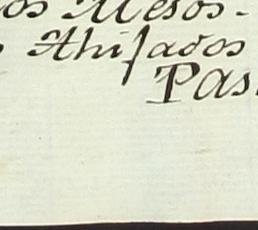 os Mesos-
Ahijados
Pas